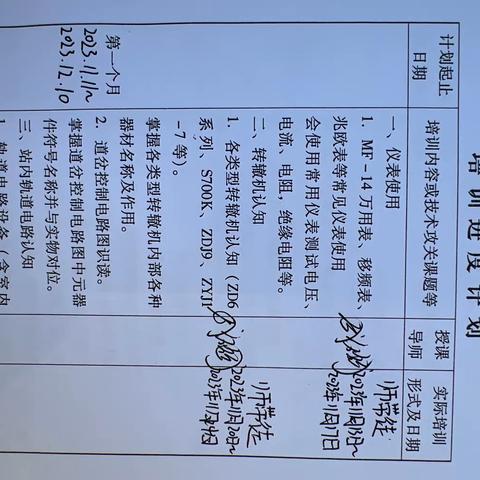 培训进度计划
计划起止日期
培训内容或技术攻关课题等
授课导师
实际培训形式及日期
第一个月
2023.11.11~
2023.12.10
一、仪表使用
1. MF-14 万用表、移频表、
兆欧表等常见仪表使用
会使用常用仪表测试电压、
电流、电阻，绝缘电阻等。
师带徒
2023年11月13日~
2023年11月17日
二、转辙机认知
1. 各类型转辙机认知（ZD6
系列、S700K、ZDJ9、ZYJ
-7 等）。
掌握各类型转辙机内部各种
器材名称及作用。
2. 道岔控制电路图识读。
掌握道岔控制电路图中元器
件符号名称并与实物对位。
师带徒
2023年11月20日~
三、站内轨道电路认知
1. 轨道电路设备（含室内